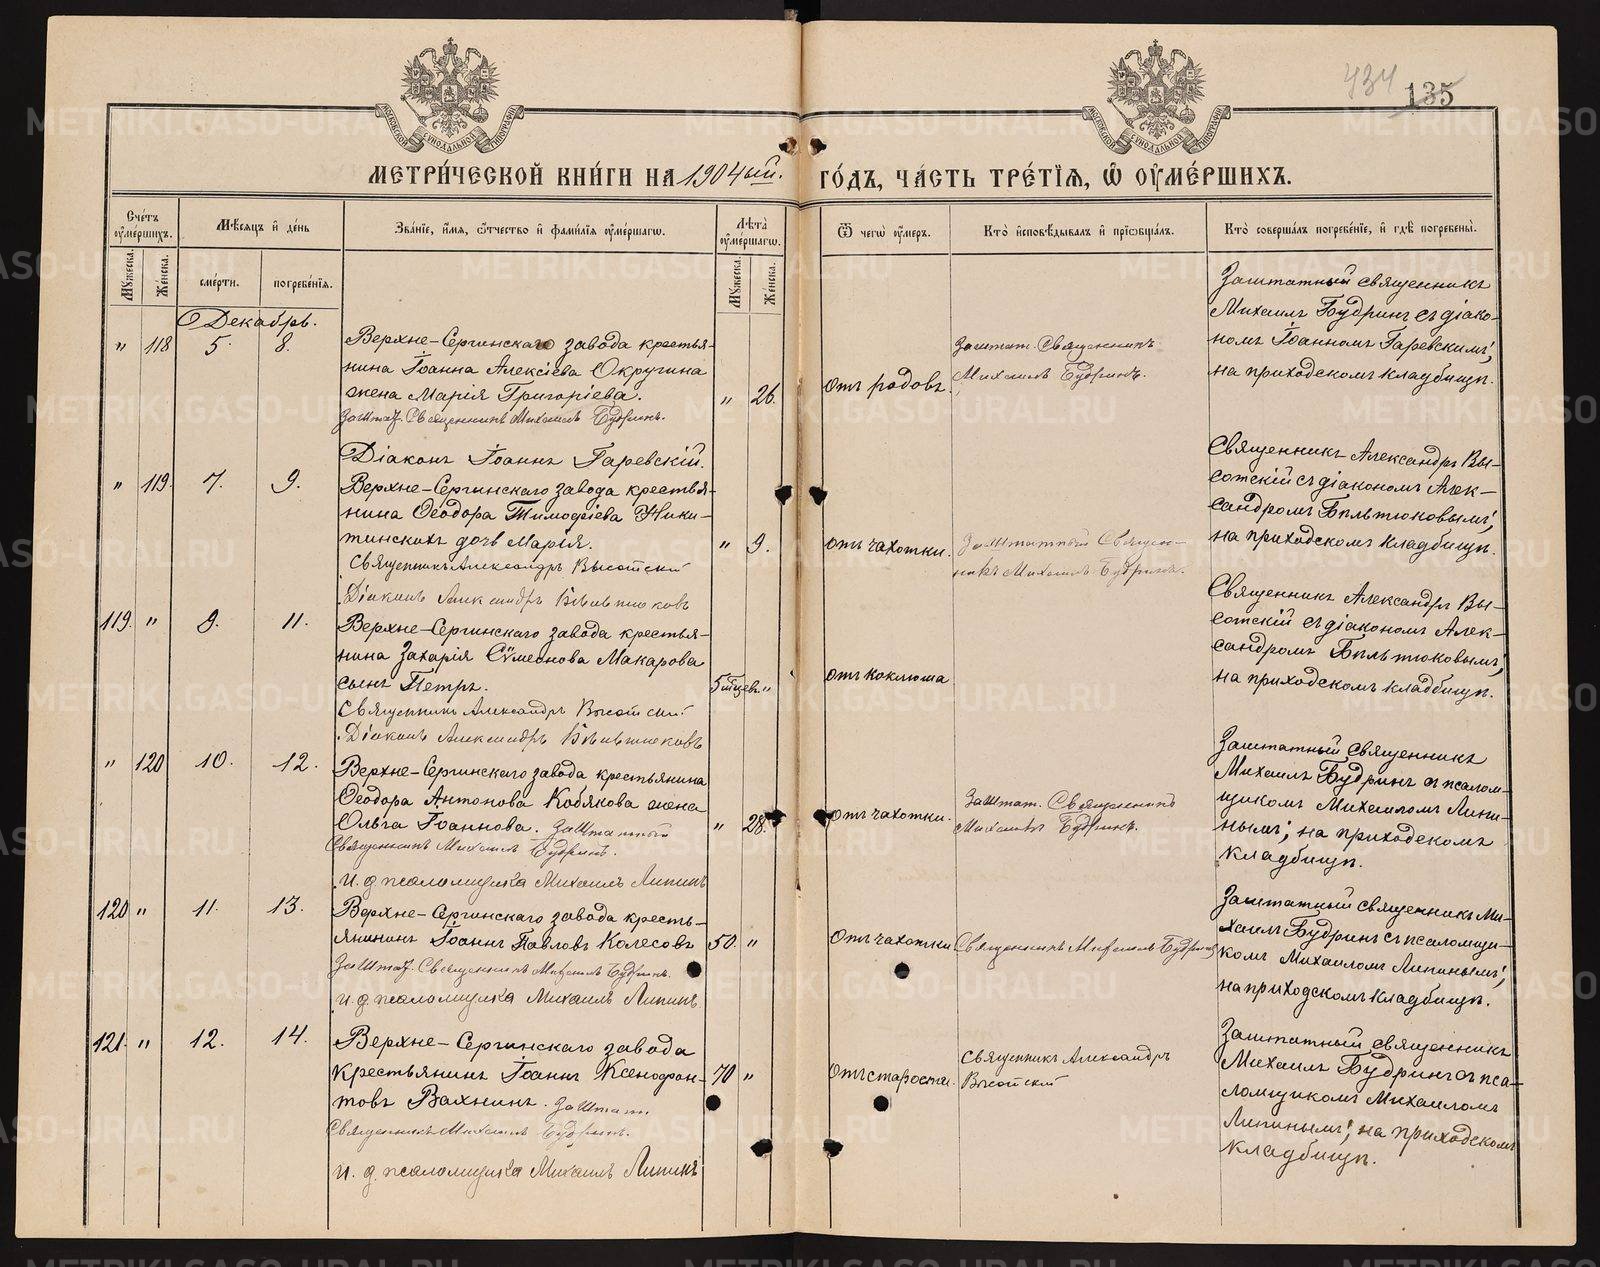 434 135
МОСКОВСКОЙ СѴНОДАЛЬНОЙ ТИПОГРАФІИ
МОСКОВСКОЙ СѴНОДАЛЬНОЙ ТИПОГРАФІИ
МЕТРИ́ЧЕСКОЙ КНИ́ГИ НА 1904ый. ГО́ДЪ, ЧА́СТЬ ТРЕ́ТІѦ, Ѡ҆ ОУ҆МЕ́РШИХЪ.
Сче́тъ оу҆ме́ршихъ.
Мѣ́сяцъ и҆ де́нь
Зва́нїе, и҆́мя, ѻ҆́тчество и҆ фами́лїя оу҆ме́ршагѡ.
Лѣ́та оу҆ме́ршагѡ.
Ѿ чегѡ̀ оу҆́меръ.
Кто̀ и҆сповѣ́дывалъ и҆ прїѡбща́лъ.
Кто̀ соверша́лъ погребе́нїе, и҆ гдѣ̀ погребены̀.
Мꙋ́жеска.
Же́нска.
сме́рти.
погребе́нїя.
Мꙋ́жеска.
Же́нска.
Декабрь.
" 118 5. 8.
Верхне-Сергинскаго завода крестья-
нина Іоанна Алексіева Округина
жена Марія Григоріева.
Заштат. Священникъ Михаилъ Будринъ.
Діаконъ Іоаннъ Гаревскій.
" 26.
отъ родовъ.
Заштат. Священникъ
Михаилъ Будринъ.
Заштатный священникъ
Михаилъ Будринъ съ діако-
номъ Іоанномъ Гаревскимъ;
на приходскомъ кладбищѣ.
" 119. 7. 9.
Верхне-Сергинскаго завода крестья-
нина Ѳеодора Тимофіева Ники-
тинскихъ дочь Марія.
Священникъ Александръ Высотскій
Діаконъ Александръ Бѣльтюковъ
" 9.
отъ чахотки.
Заштатный Священ-
никъ Михаилъ Будринъ.
Священникъ Александръ Вы-
сотскій съ діакономъ Алек-
сандромъ Бѣльтюковымъ;
на приходскомъ кладбищѣ.
119. " 9. 11.
Верхне-Сергинскаго завода крестья-
нина Захарія Сѵмеонова Макарова
сынъ Петръ.
Священникъ Александръ Высотскій
Діаконъ Александръ Бѣльтюковъ
5 мѣсяцев. "
отъ коклюша
Священникъ Александръ Вы-
сотскій съ діакономъ Алек-
сандромъ Бѣльтюковымъ;
на приходскомъ кладбищѣ.
" 120 10. 12.
Верхне-Сергинскаго завода крестьянина
Ѳеодора Антонова Кобякова жена
Ольга Іоаннова. Заштатный
Священникъ Михаилъ Будринъ.
И. д. псаломщика Михаилъ Липинъ
" 28.
отъ чахотки.
Заштат. Священникъ
Михаилъ Будринъ.
Заштатный священникъ
Михаилъ Будринъ съ псалом-
щикомъ Михаиломъ Липи-
нымъ; на приходскомъ
кладбищѣ.
120 " 11. 13.
Верхне-Сергинскаго завода кресть-
янинъ Іоаннъ Павловъ Колесовъ
Заштат. Священникъ Михаилъ Будринъ.
И. д. псаломщика Михаилъ Липинъ
50. "
отъ чахотки
Священникъ Михаилъ Будринъ
Заштатный священникъ Ми-
хаилъ Будринъ съ псаломщи-
комъ Михаиломъ Липинымъ;
на приходскомъ кладбищѣ.
121. " 12. 14.
Верхне-Сергинскаго завода
крестьянинъ Іоаннъ Ксенофон-
товъ Вахнинъ. Заштат.
Священникъ Михаилъ Будринъ.
И. д. псаломщика Михаилъ Липинъ
70 "
отъ старости.
Священникъ Александръ
Высотскій
Заштатный священникъ
Михаилъ Будринъ съ пса-
ломщикомъ Михаиломъ
Липинымъ; на приходскомъ
кладбищѣ.
METRIKI.GASO-URAL.RU